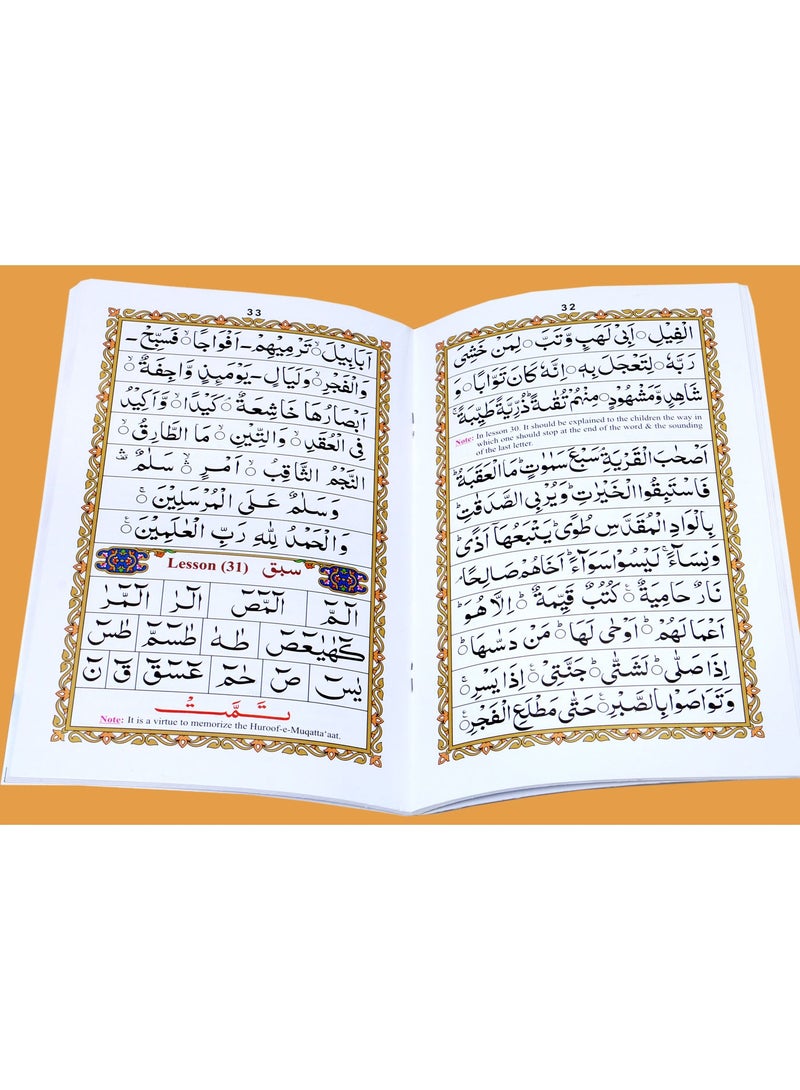 32
الْفِيْلِ۝ اَبِیْ لَهَبٍ وَّتَبَّ۝ لِمَنْ خَشِیَ
رَبَّهٗ۝ لِتَعْجَلَ بِهٖ۝ اِنَّهٗ كَانَ تَوَّابًا۝ وَ
شَاهِدٍ وَّمَشْهُوْدٍ۝ مِنْهُمْ تُقٰىةً ذُرِّيَّةً طَيِّبَةً
Note: In lesson 30. It should be explained to the children the way in
which one should stop at the end of the word & the sounding
of the last letter.
اَصْحٰبَ الْقَرْيَةِ ۘ سَبْعَ سَمٰوٰتٍ ؕ مَا الْعَقَبَةُ ؕ
فَاسْتَبِقُوا الْخَيْرٰتِ ؕ وَيُرْبِی الصَّدَقٰتِ ؕ
بِالْوَادِ الْمُقَدَّسِ طُوًی ؕ يَتْبَعُهَاۤ اَذًی ؕ
وَنِسَآءً ۚ لَيْسُوْا سَوَآءً ؕ اَخَاهُمْ صَالِحًا ۘ
نَارٌ حَامِيَةٌ۝ كُتُبٌ قَيِّمَةٌ۝ اِلَّا هُوَ ؕ
اَعْمَالَهُمْ۝ اَوْحٰی لَهَا۝ مَنْ دَسّٰىهَا۝
اِذَا صَلّٰی ؕ لَشَتّٰی ؕ جَنَّتِیْ۝ اِذَا يَسْرِ ۚ
وَتَوَاصَوْا بِالصَّبْرِ۝ حَتّٰی مَطْلَعِ الْفَجْرِ۝
33
اَبَابِيْلَ۝ تَرْمِيْهِمْ - اَفْوَاجًا۝ فَسَبِّحْ -
وَالْفَجْرِ۝ وَلَيَالٍ - يَوْمَئِذٍ وَّاجِفَةٌ۝
اَبْصَارُهَا خَاشِعَةٌ۝ كَيْدًا۝ وَّاَكِيْدُ
فِی الْعُقَدِ۝ وَالتِّيْنِ۝ مَا الطَّارِقُ۝
النَّجْمُ الثَّاقِبُ۝ اَمْرٍ۝ سَلٰمٌ
وَسَلٰمٌ عَلَی الْمُرْسَلِيْنَ۝
وَالْحَمْدُ لِلّٰهِ رَبِّ الْعٰلَمِيْنَ۝
Lesson (31) سبق
الٓمّٓ الٓمّٓصٓ الٓرٰ الٓمّٓرٰ
كٓهٰيٰعٓصٓ طٰهٰ طٰسٓمّٓ طٰسٓ
يٰسٓ صٓ حٰمٓ عٓسٓقٓ قٓ نٓ
تَمَّتْ
Note: It is a virtue to memorize the Huroof-e-Muqatta'aat.